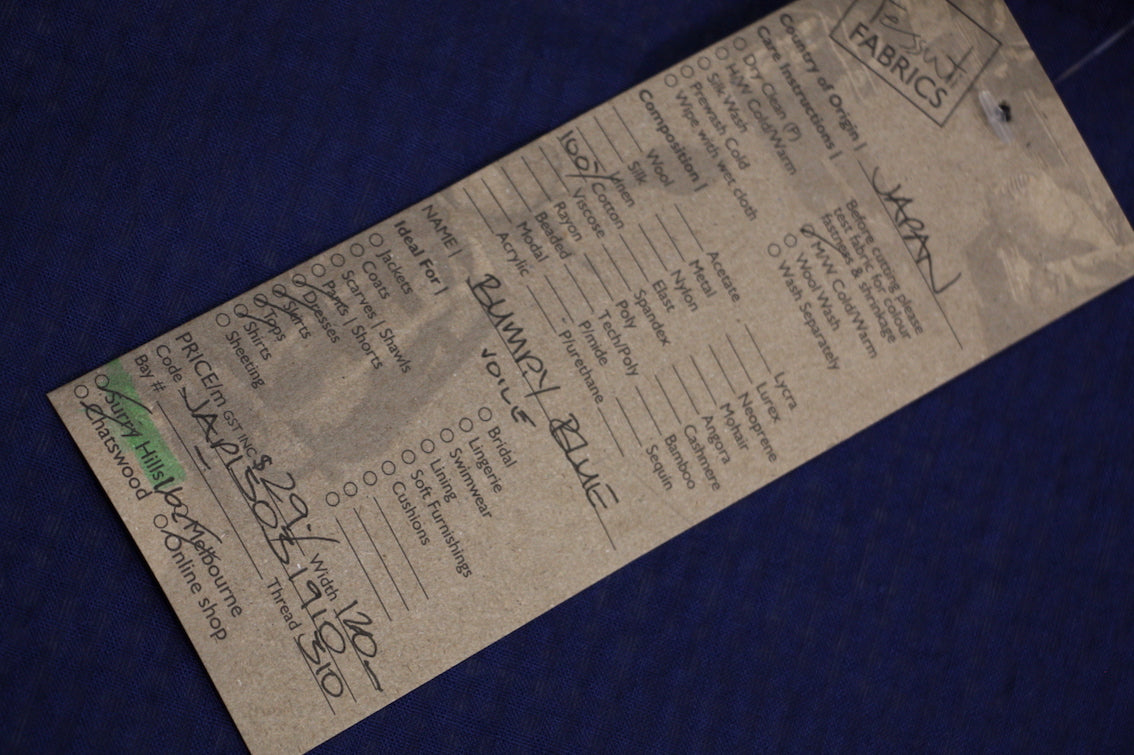 Tessuti
FABRICS
Country of Origin | JAPAN
Care Instructions |
Before cutting please
test fabric for colour
fastness & shrinkage
Dry Clean (P)
H/W Cold/Warm
Silk Wash
Prewash Cold
Wipe with wet cloth
M/W Cold/Warm
Wool Wash
Wash Separately
Composition |
Wool
Silk
Linen
100% Cotton
Viscose
Rayon
Beaded
Modal
Acrylic
Acetate
Metal
Nylon
Elast
Spandex
Poly
Tech/Poly
P/mide
P/urethane
Lycra
Lurex
Neoprene
Mohair
Angora
Cashmere
Bamboo
Sequin
NAME | BUMPY BLUE
VOILE
Ideal For |
Jackets
Coats
Scarves | Shawls
Pants | Shorts
Dresses
Skirts
Tops
Shirts
Sheeting
Bridal
Lingerie
Swimwear
Lining
Soft Furnishings
Cushions
PRICE/m GST INC $29.- Width 120
Code Thread 310
Bay #
Surry Hills Melbourne
Chatswood Online shop